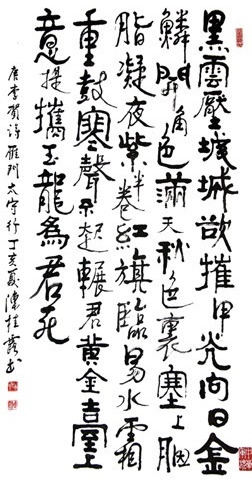 黑雲壓城城欲摧甲光向日金
鱗開角色滿天秋色裏塞上胭
脂凝夜紫半卷紅旗臨易水霜
重鼓寒聲不起輾君黃金臺上
意提攜玉龍為君死
唐李賀詩雁門太守行丁亥夏陳桂书